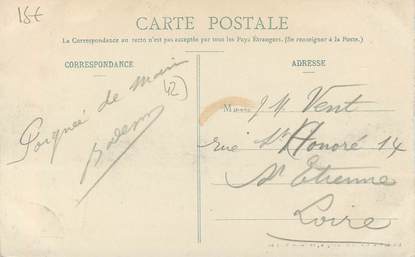 18€
CARTE POSTALE
La Correspondance au recto n'est pas acceptée par tous les Pays Étrangers. (Se renseigner à la Poste.)
CORRESPONDANCE
ADRESSE
Poignée de main
42
M J M Vent
rue St Honoré 14
St Etienne
Loire